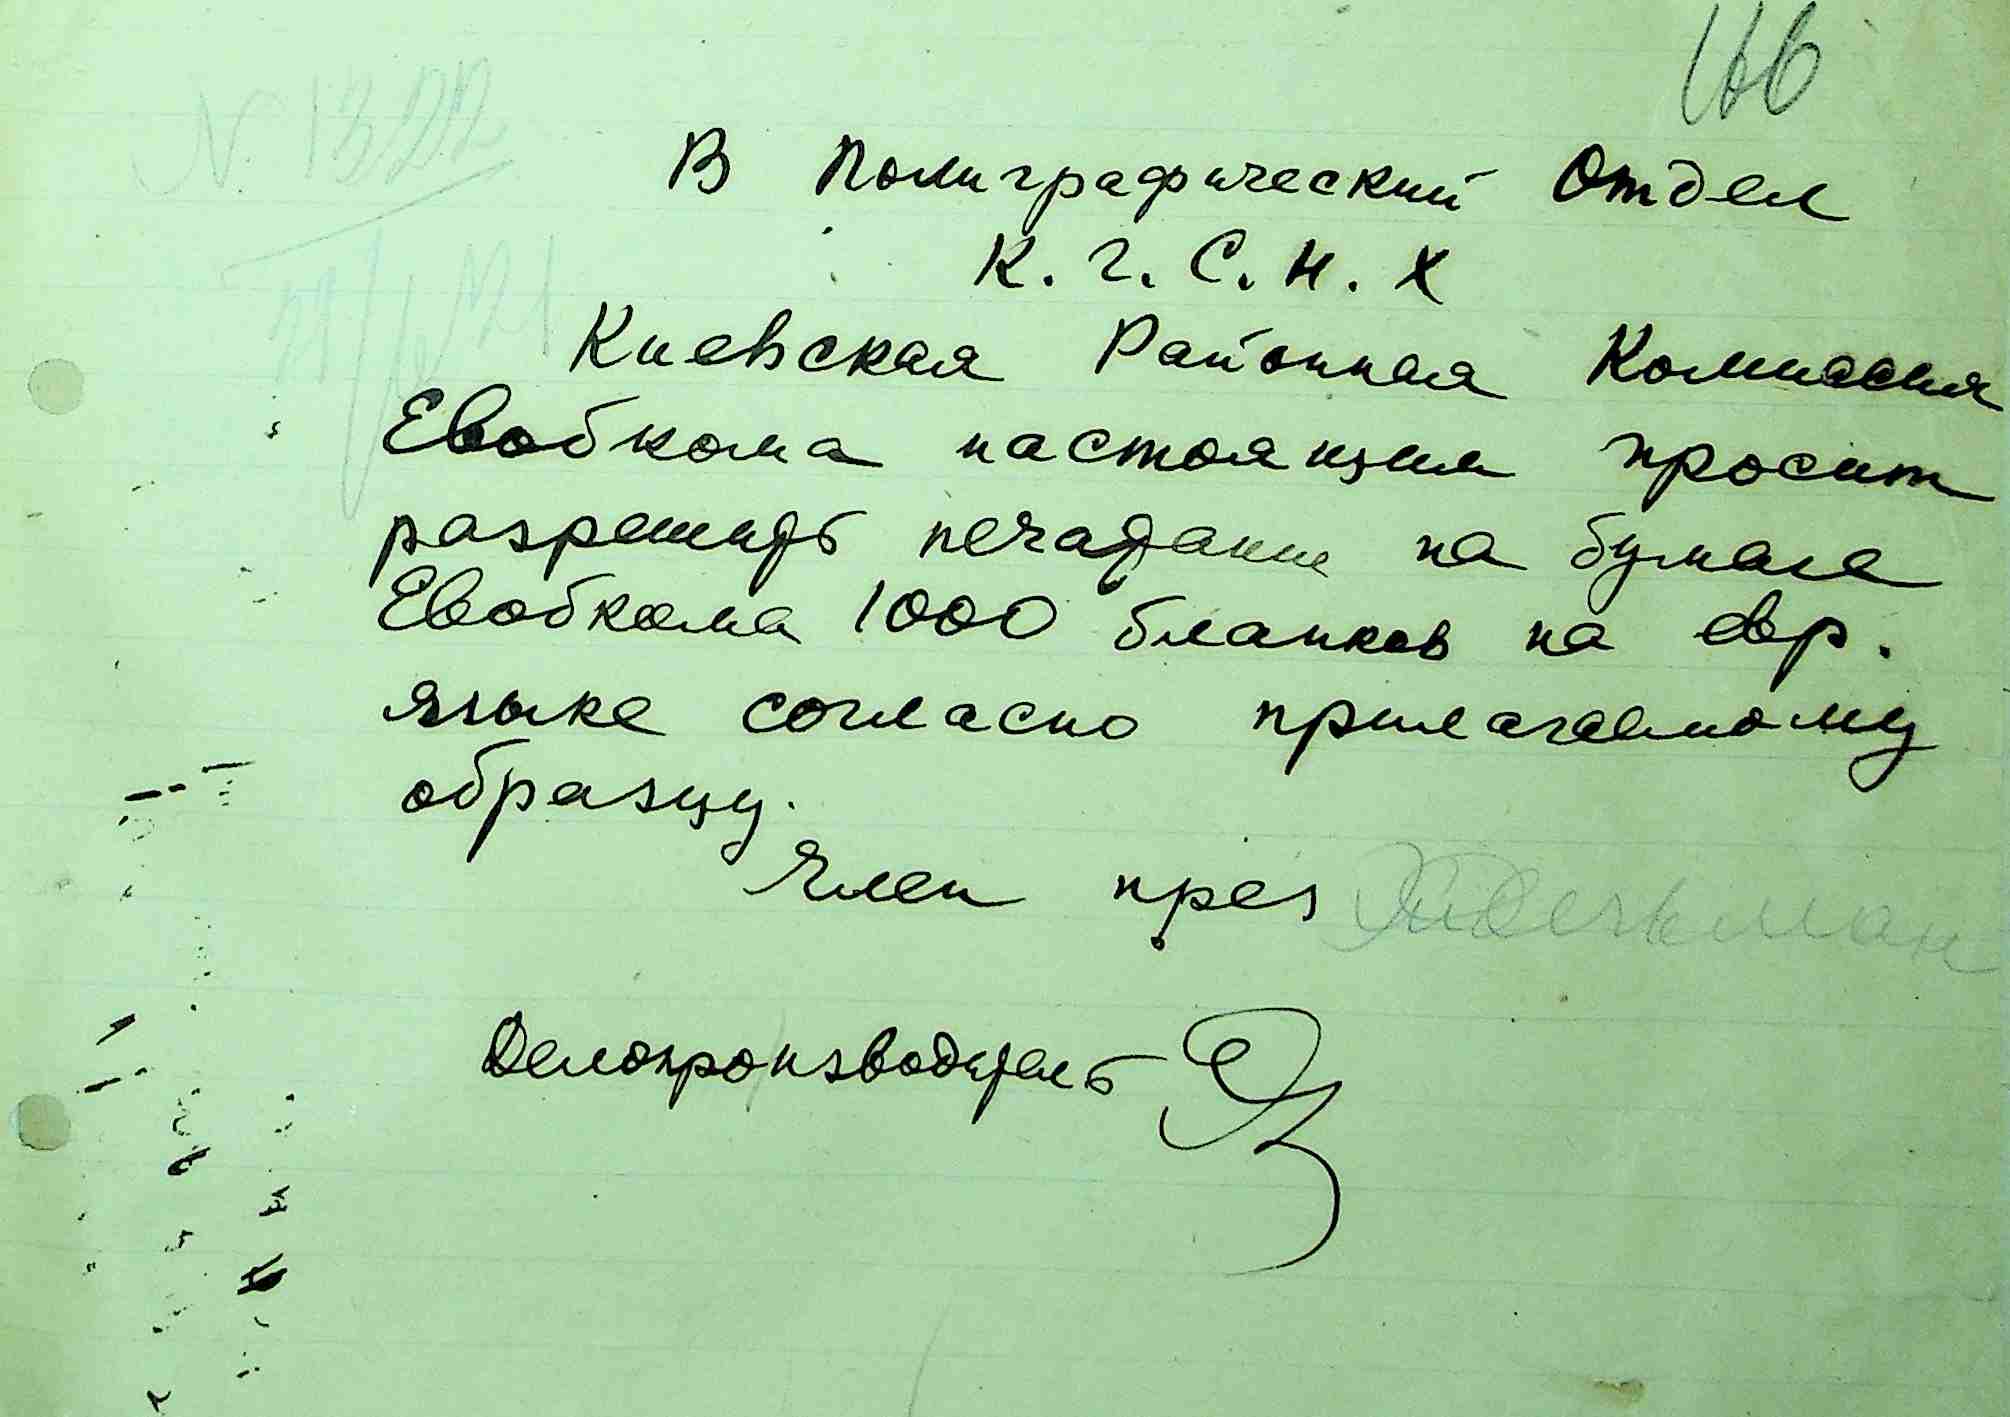 N. 1322
В Полиграфический Отдел
К. Г. С. Н. Х
Киевская Районная Комиссия
Евобкома настоящим просит
разрешить печатание на бумаге
Евобкома 1000 бланков на евр.
языке согласно прилагаемому
образцу.
Член през
Делопроизводитель